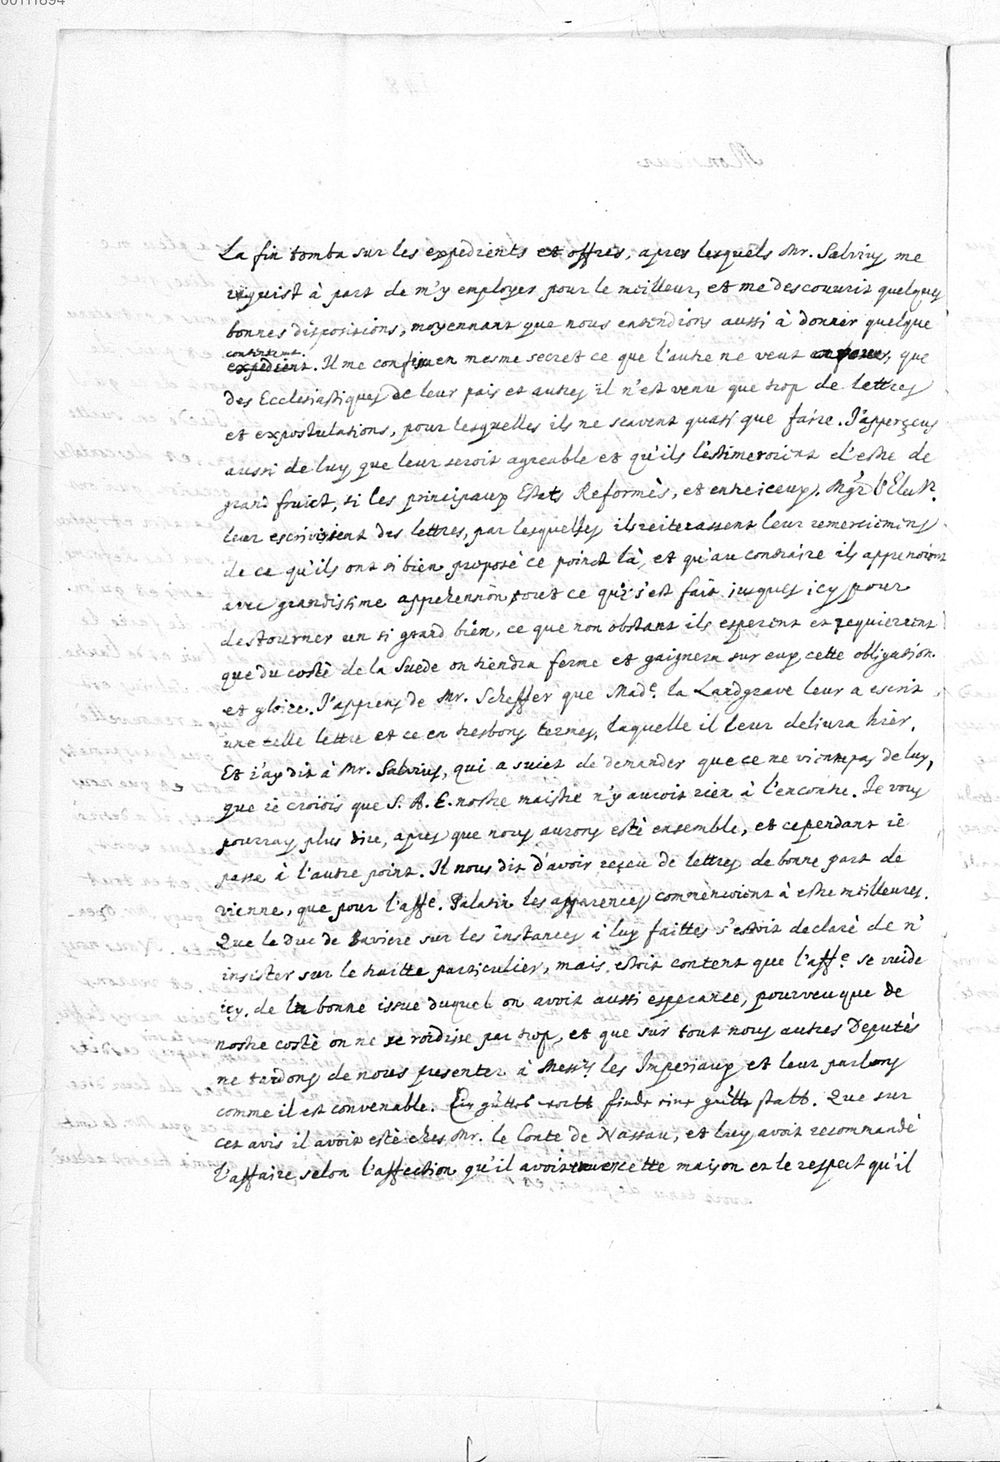 00111894
La fin tomba sur les expedients et offres, apres lesquels Mr. Salvius me
requist à part de m'y employer pour le meilleur, et me descouvrit quelques
bonnes dispositions, moyennant que nous entendions aussi à donner quelque
contentemt.
expedient. Il me confia en mesme secret ce que l'autre ne veut que
des Ecclesiastiques de leur païs et autres il n'est venu que trop de lettres
et expostulations, pour lesquelles ils ne scavent quasi que faire. J'apperçeus
aussi de luy que leur seroit agreable et qu'ils l'estimeroient d'estre de
grand fruict, si les principaux Estats Reformès, et entre iceux, Mgr l'Elect.
leur escrivissent des lettres, par lesquelles ils reiterassent leur remerciemens
de ce qu'ils ont si bien proposé ce poinct là, et qu'au contraire ils apprenoient
avec grandissime apprehension tout ce qui s'est fait jusques icy pour
destourner un si grand bien, ce que non obstant ils esperent et requierent
que du costè de la Suede on tiendra ferme et gaignera sur eux cette obligation
et gloire. J'apprens de Mr. Scheffer que Made. la Landgrave leur a escrit
une telle lettre et ce en tresbons termes, laquelle il leur delivra hier.
Et i'ay dit à Mr. Salvius, qui a sujet de demander que ce ne vienne pas de luy,
que ie croiois que S. A. E. nostre maistre n'y auroit rien à l'encontre. Je vous
pourray plus dire, apres que nous aurons estè ensemble, et cependant ie
passe à l'autre point. Il nous dit d'avoir reçeu de lettres de bonne part de
Vienne, que pour l'affe. Palatin les apparences commencoient à estre meilleures.
Que le Duc de Baviere sur les instances à luy faittes s'estoit declarè de n'
insister sur le traitte particulier, mais estoit content que l'affe. se vuide
icy, de la bonne issue duquel on avoit aussi esperance, pourveu que de
nostre costè on ne se roidisse par trop, et que sur tout nous autres Deputès
ne tardons de nous presenter à Messrs les Imperiaux et leur parlions
comme il est convenable. Ein guttes wortt finde eine gutte statt. Que sur
cet avis il avoit estè chez Mr. le Conte de Nassau, et luy avoit recommandé
l'affaire selon l'affection qu'il avoit envers cette maison et le respect qu'il